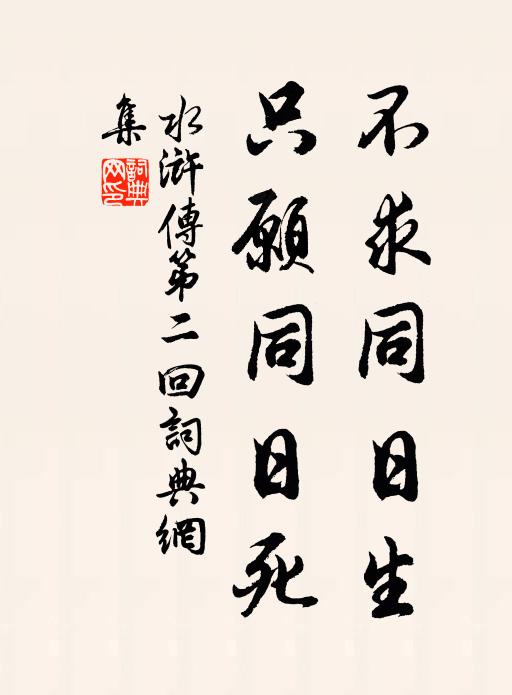 不求同日生
只願同日死
水滸傳第二回詞典網
集
詞典
网印